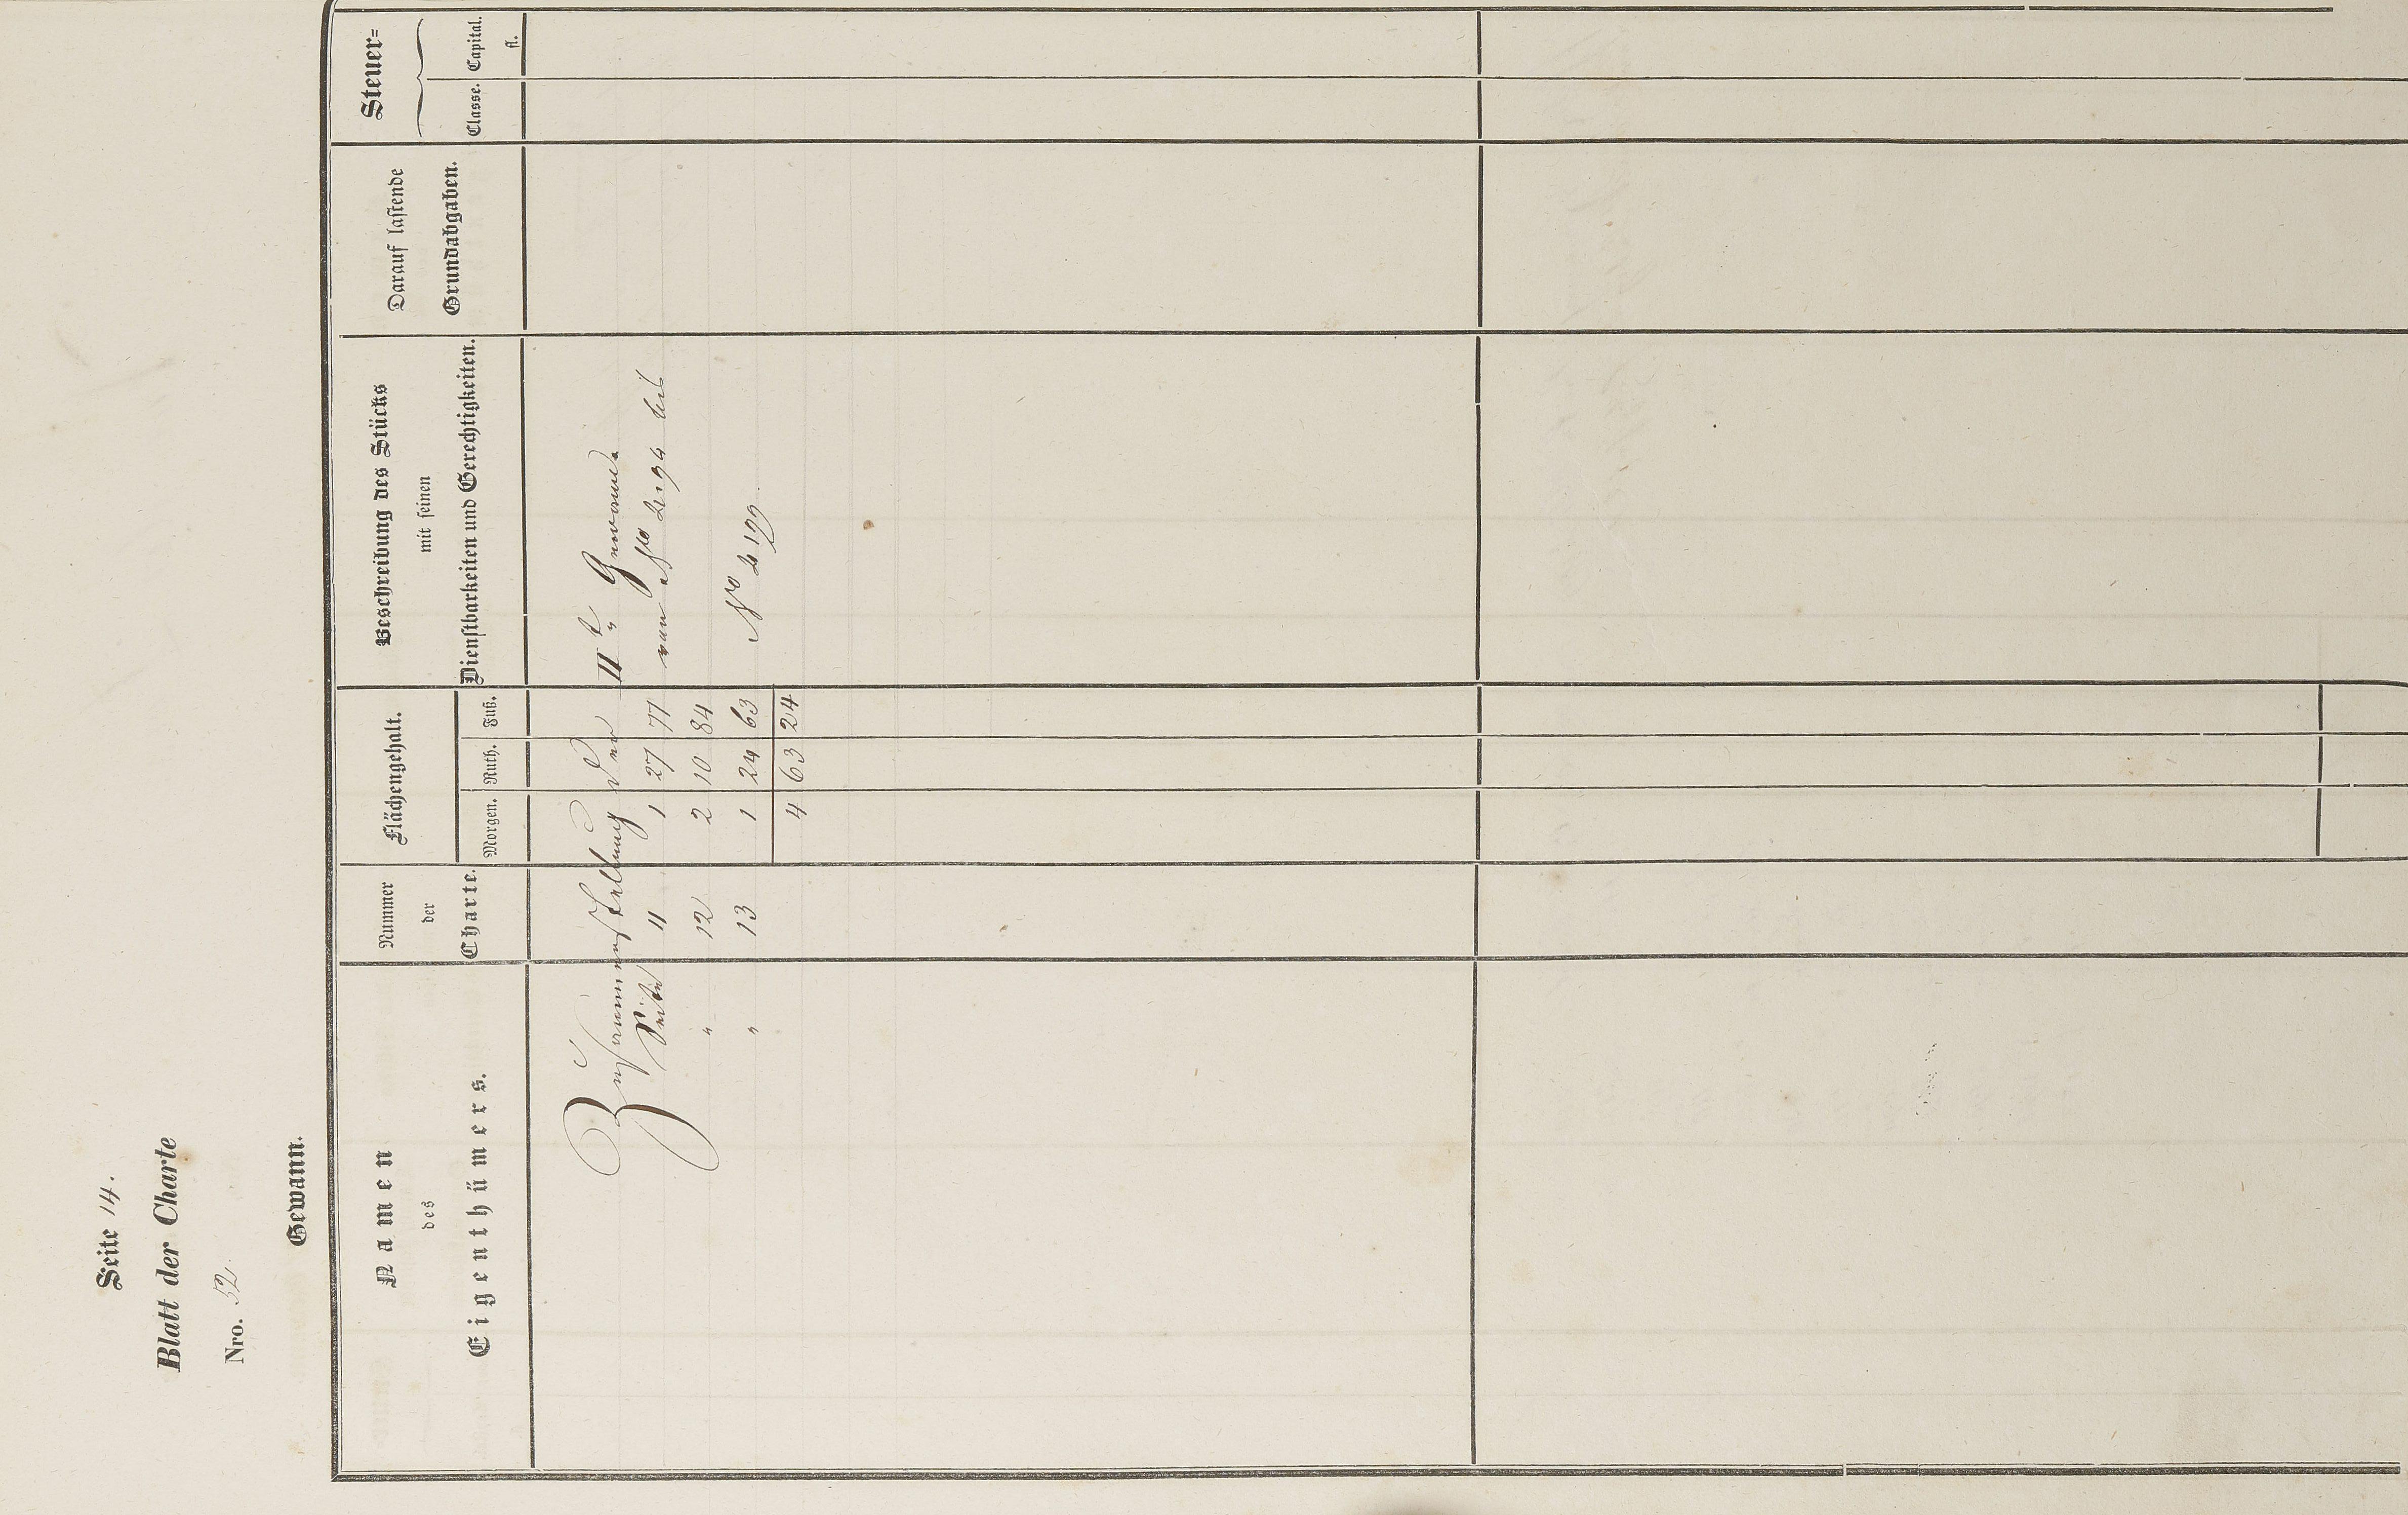 Seite 14.
Blatt der Charte
Nro. 52.
Gewann.
Namen
des
Eigenthümers.
Nummer
der
Charte.
Flächengehalt.
Morgen. Ruth. Fuß.
Beschreibung des Stücks
mit seinen
Dienstbarkeiten und Gerechtigkeiten.
Darauf lastende
Grundabgaben.
Steuer=
Classe. Capital.
fl.
Zusammenstellung der IIt. Gewann.
Seite 11 1 27 77 von No 2194 bis
" 12 2 10 84
" 13 1 24 63 No 2199
4 63 24